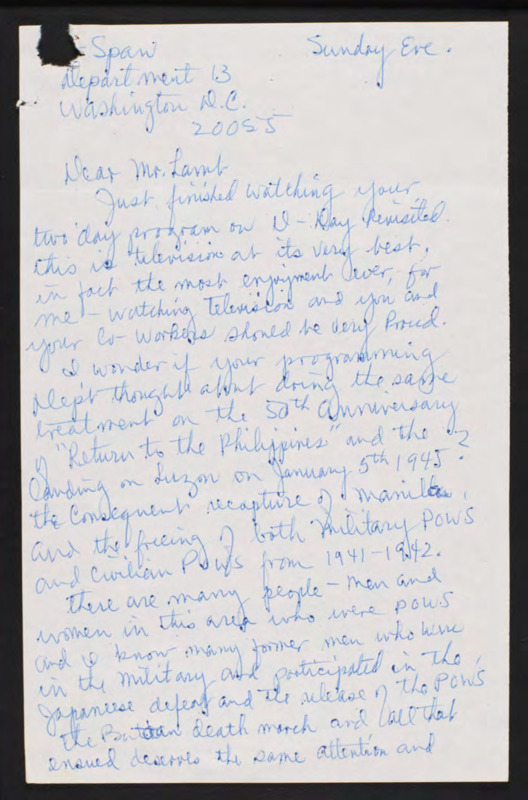 - Span Sunday Eve.
Department 13
Washington D.C.
20055
Dear Mr. Lamb
Just finished watching your
two day program on D-Day Revisited.
this is television at its very best,
in fact the most enjoyment ever, for
me - watching Television and you and
your Co-workers should be very Proud.
I wonder if your programming
Dept thought about doing the same
treatment on the 50th Anniversary
of "Return to the Philippines" and the
Landing on Luzon on January 5th 1945?
the Consequent recapture of Manila,
and the freeing of both Military POWS
and Civilian POWs from 1941-1942.
there are many people - men and
women in this area who were POWS
and I know many former men who were
in the military and participated in the
Japaneese defeat and the release of the POWS
the Bataan death march and all that
ensued deserves the same attention and